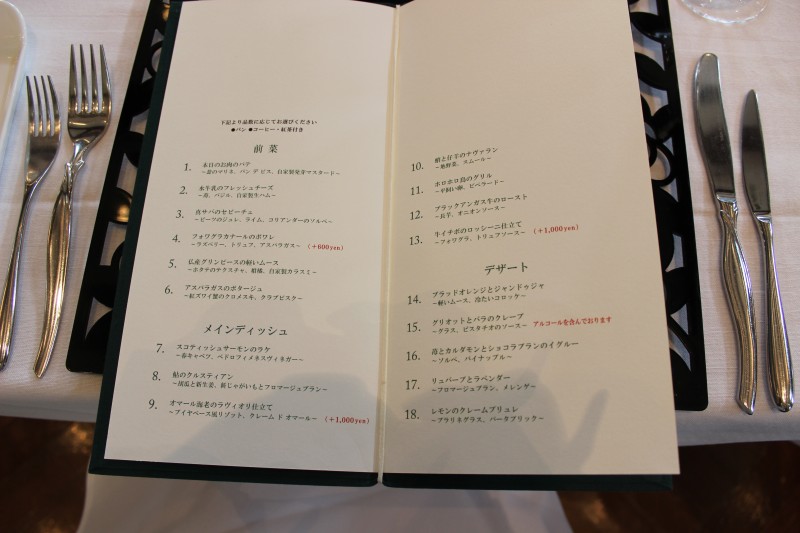 下記より品数に応じてお選びください
●パン ●コーヒー・紅茶付き
前 菜
1. 本日のお肉のパテ
～茄のマリネ、パン デ ピス、自家製発芽マスタード～
2. 水牛乳のフレッシュチーズ
～苺、バジル、自家製生ハム～
3. 真サバのセビーチェ
～ビーツのジュレ、ライム、コリアンダーのソルベ～
4. フォワグラカナールのポワレ
～ラズベリー、トリュフ、アスパラガス～ (＋600yen)
5. 仏産グリンピースの軽いムース
～ホタテのテクスチャ、柑橘、自家製カラスミ～
6. アスパラガスのポタージュ
～紅ズワイ蟹のクロメスキ、クラブビスク～
メインディッシュ
7. スコティッシュサーモンのラケ
～春キャベツ、ペドロフィメネスヴィネガー～
8. 鮎のクルスティアン
～胡瓜と新生姜、新じゃがいもとフロマージュブラン～
9. オマール海老のラヴィオリ仕立て
～ブイヤベース風リゾット、クレーム ド オマール～ (＋1,000yen)
10. 蛸と仔羊のナヴァラン
～島野菜、スムール～
11. ホロホロ鳥のグリル
～平飼い卵、ピペラード～
12. ブラックアンガス牛のロースト
～長芋、オニオンソース～
13. 牛イチボのロッシーニ仕立て
～フォワグラ、トリュフソース～ (＋1,000yen)
デザート
14. ブラッドオレンジとジャンドゥジャ
～軽いムース、冷たいコロッケ～
15. グリオットとバラのクレープ
～グラス、ピスタチオのソース～ アルコールを含んでおります
16. 苺とカルダモンとショコラブランのイグルー
～ソルベ、パイナップル～
17. リュバーブとラベンダー
～フロマージュブラン、メレンゲ～
18. レモンのクレームブリュレ
～プラリネグラス、パータブリック～